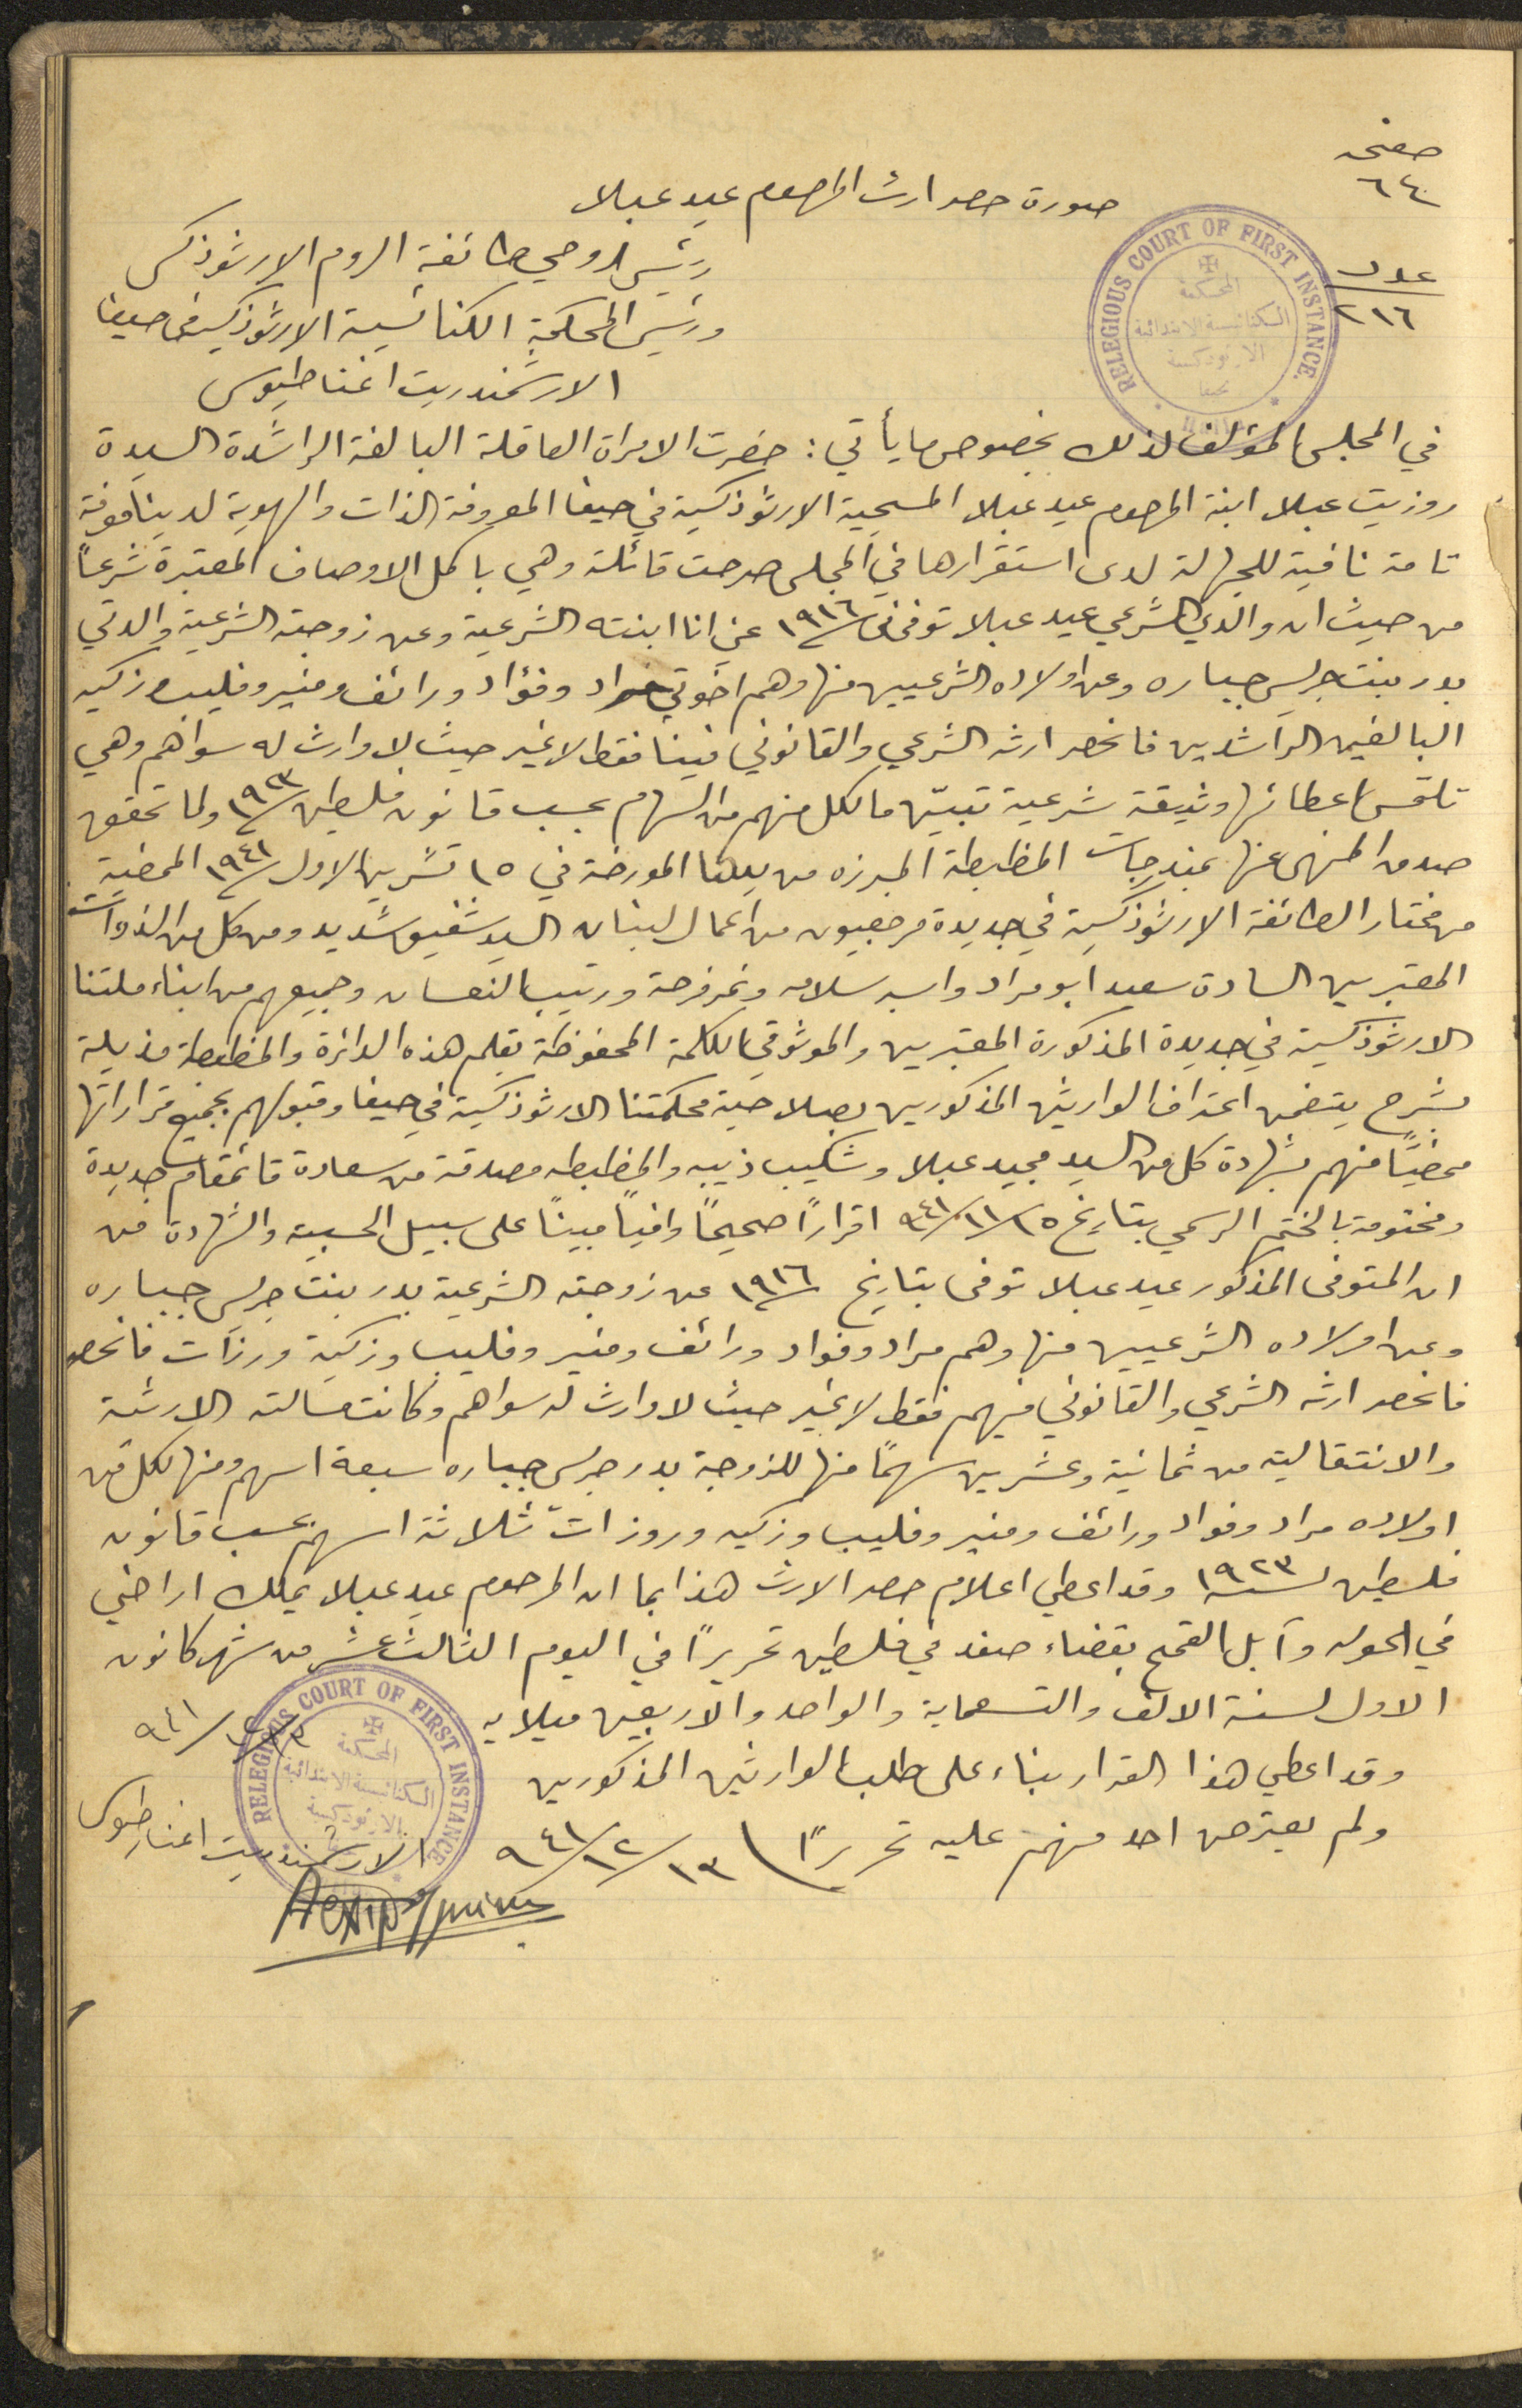 صفحه
٦٤
صورة حصر ارث المرحوم عيد عبلا
عدد
٢١٦
RELEGIOUS COURT OF FIRST INSTANCE.
المحكمة
الكنائسية الابتدائية
الارثوذكسية
بحيفا
رئيس روحي طائفة الروم الارثوذكس
ورئيس المحكمة الكنائسية الارثوذكسية في حيفا
الارشمندريت اغناطيوس
في المجلس المؤلف لذلك بخصوص ما يأتي : حضرت الامراة العاقلة البالغة الراشدة السيدة
روزيت عبلا ابنة المرحوم عيد عبلا المسيحية الارثوذكسية في حيفا المعروفة الذات والهوية لدينا معرفة
تامة نافية للجهالة لدى استقرارها في المجلس صرحت قائلة وهي باكمل الاوصاف المعتبرة شرعاً
من حيث ان والدي الشرعي عيد عبلا توفى في سنة ١٩١٦ عني انا ابنته الشرعية وعن زوجته الشرعية والدتي
بدر بنت جرلس جباره وعن اولاده الشرعيين منها وهم اخوتي مراد وفؤاد ورائف ومنير وفليب وزكيه
البالغين الراشدين فانحصر ارثه الشرعي والقانوني فينا فقط لا غير حيث لا وارث له سواهم وهي
تلتمس اعطائها وثيقة شرعية تبيّن ما لكل منهم من السهام بحسب قانون فلسطين سنة ١٩٢٣ ولما تحقق
صدق المنهى عنها بمندرجات المظبطة المبرزه من يدها المورخة في ١٥ تشرين الاول سنة ١٩٤١ الممضية
من مختار الطائفة الارثوذكسية في جديدة مرجعيون من اعمال لبنان السيد شفيق شديد ومن كل من الذوات
المعتبرين السادة سعيد ابو مراد واسبر سلامه ونمر فرحة ورتيب النعسان وجميعهم من ابناء ملتنا
الارثوذكسية في جديدة المذكورة المعتبرين والموثوقي الكلمة المحفوظة بقلم هذه الدائرة والمظبطة مذيلة
بشرح يتضمن اعتراف الوارثين المذكورين بصلاحية محكمتنا الارثوذكسية في حيفا وقبولهم بجميع قراراتها
ممضيًا منهم بشهادة كل من السيد مجيد عبلا وشكيب ذيبه والمظبطه مصدقة من سعادة قائمقام جديدة
ومختومة بالختم الرسمي بتاريخ ١٥/١١/٩٤١ اقرارًا صحيحًا وافيًا مبينًا على سبيل الحسبية والشهادة من
ان المتوفى المذكور عيد عبلا توفى بتاريخ سنة ١٩١٦ عن زوجته الشرعية بدر بنت جرلس جباره
وعن اولاده الشرعيين منها وهم مراد وفواد ورائف ومنير وفليب وزكية ورزات فانحصر
فانحصر ارثه الشرعي والقانوني فيهم فقط لا غير حيث لا وارث له سواهم وكانت مسالته الارثية
والانتقالية من ثمانية وعشرين سهمًا منها للزوجة بدر جرلس جباره سبعة اسهم ومنها لكل من
اولاده مراد وفواد ورائف ومنير وفليب وزكيه وروزات ثلاثة اسهم بحسب قانون
فلسطين لسنة ١٩٢٣ وقد اعطي اعلام حصر الارث هذا بما ان المرحوم عيد عبلا يملك اراضي
في الحوله وآبل القمح بقضاء صفد في فلسطين تحريرًا في اليوم الثالث عشر من شهر كانون
الاول لسنة الالف والتسعماية والواحد والاربعين ميلاديه
وقد اعطي هذا القرار بناء على طلب الوارثين المذكورين
ولم يعترض احد منهم عليه تحريرًا ١٣/١٢/٩٤١
RELEGIOUS COURT OF FIRST INSTANCE
المحكمة
الكنائسية الابتدائية
الارثوذكسية
الارشمندريت اغناطيوس